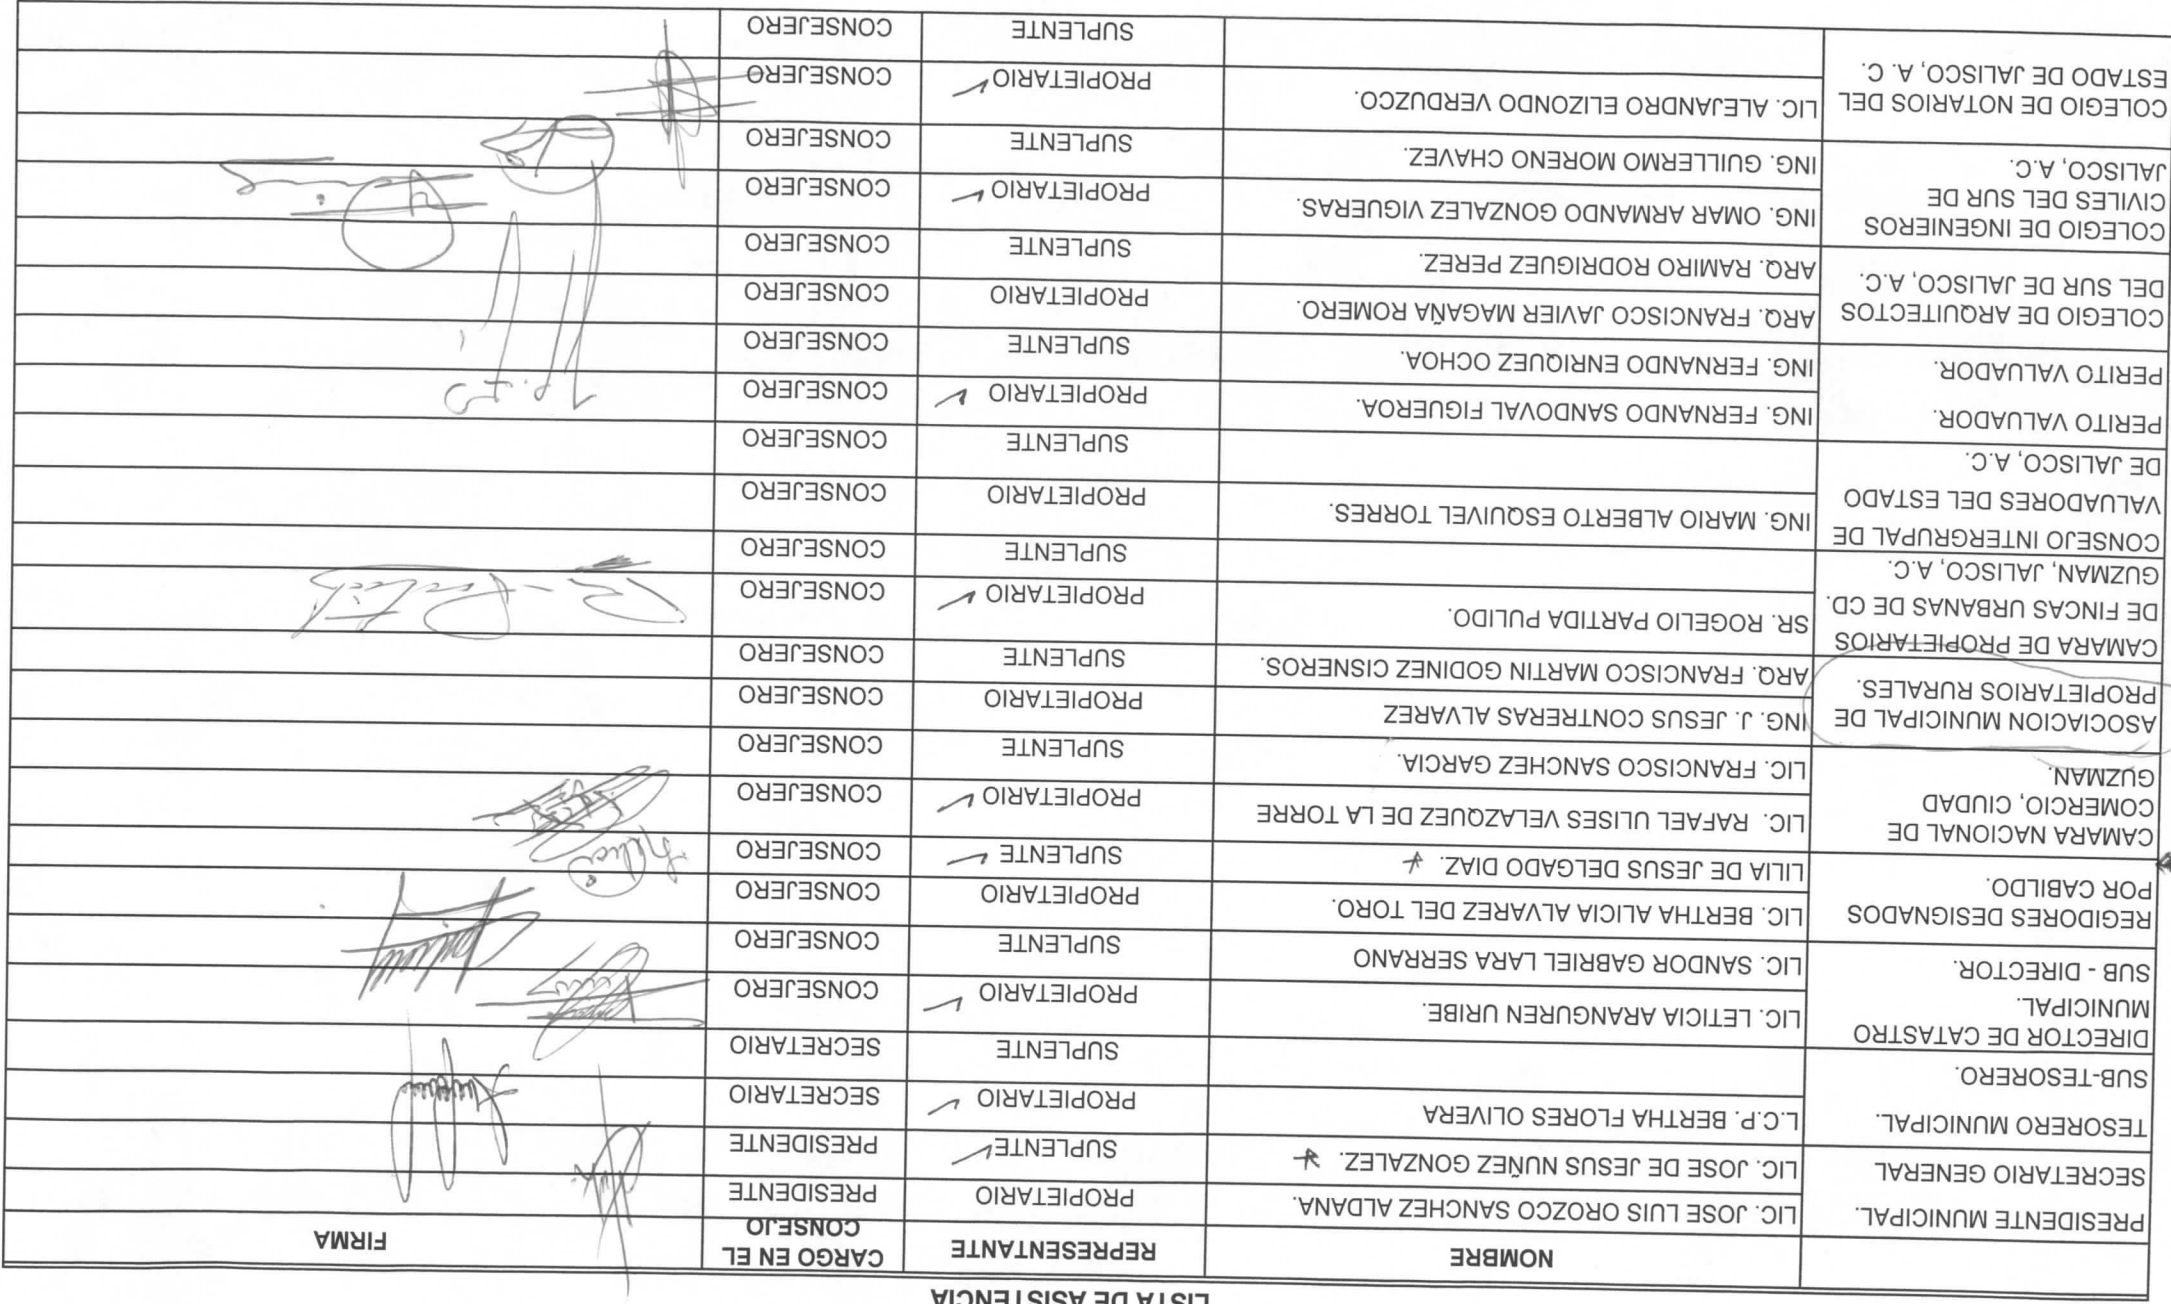 LISTA DE ASISTENCIA
NOMBRE
REPRESENTANTE
CARGO EN EL
CONSEJO
FIRMA
PRESIDENTE MUNICIPAL.
LIC. JOSE LUIS OROZCO SANCHEZ ALDANA.
PROPIETARIO
PRESIDENTE
SECRETARIO GENERAL
LIC. JOSE DE JESUS NUÑEZ GONZALEZ.
SUPLENTE
PRESIDENTE
TESORERO MUNICIPAL.
L.C.P. BERTHA FLORES OLIVERA
PROPIETARIO
SECRETARIO
SUB-TESORERO.
SUPLENTE
SECRETARIO
DIRECTOR DE CATASTRO
MUNICIPAL.
LIC. LETICIA ARANGUREN URIBE.
PROPIETARIO
CONSEJERO
SUB - DIRECTOR.
LIC. SANDOR GABRIEL LARA SERRANO
SUPLENTE
CONSEJERO
REGIDORES DESIGNADOS
POR CABILDO.
LIC. BERTHA ALICIA ALVAREZ DEL TORO.
PROPIETARIO
CONSEJERO
LILIA DE JESUS DELGADO DIAZ.
SUPLENTE
CONSEJERO
CAMARA NACIONAL DE
COMERCIO, CIUDAD
GUZMAN.
LIC. RAFAEL ULISES VELAZQUEZ DE LA TORRE
PROPIETARIO
CONSEJERO
LIC. FRANCISCO SANCHEZ GARCIA.
SUPLENTE
CONSEJERO
ASOCIACION MUNICIPAL DE
PROPIETARIOS RURALES.
ING. J. JESUS CONTRERAS ALVAREZ
PROPIETARIO
CONSEJERO
ARQ. FRANCISCO MARTIN GODINEZ CISNEROS.
SUPLENTE
CONSEJERO
CAMARA DE PROPIETARIOS
DE FINCAS URBANAS DE CD.
GUZMAN, JALISCO, A.C.
SR. ROGELIO PARTIDA PULIDO.
PROPIETARIO
CONSEJERO
SUPLENTE
CONSEJERO
CONSEJO INTERGRUPAL DE
VALUADORES DEL ESTADO
DE JALISCO, A.C.
ING. MARIO ALBERTO ESQUIVEL TORRES.
PROPIETARIO
CONSEJERO
SUPLENTE
CONSEJERO
PERITO VALUADOR.
ING. FERNANDO SANDOVAL FIGUEROA.
PROPIETARIO
CONSEJERO
PERITO VALUADOR.
ING. FERNANDO ENRIQUEZ OCHOA.
SUPLENTE
CONSEJERO
COLEGIO DE ARQUITECTOS
DEL SUR DE JALISCO, A.C.
ARQ. FRANCISCO JAVIER MAGAÑA ROMERO.
PROPIETARIO
CONSEJERO
ARQ. RAMIRO RODRIGUEZ PEREZ.
SUPLENTE
CONSEJERO
COLEGIO DE INGENIEROS
CIVILES DEL SUR DE
JALISCO, A.C.
ING. OMAR ARMANDO GONZALEZ VIGUERAS.
PROPIETARIO
CONSEJERO
ING. GUILLERMO MORENO CHAVEZ.
SUPLENTE
CONSEJERO
COLEGIO DE NOTARIOS DEL
ESTADO DE JALISCO, A. C.
LIC. ALEJANDRO ELIZONDO VERDUZCO.
PROPIETARIO
CONSEJERO
SUPLENTE
CONSEJERO